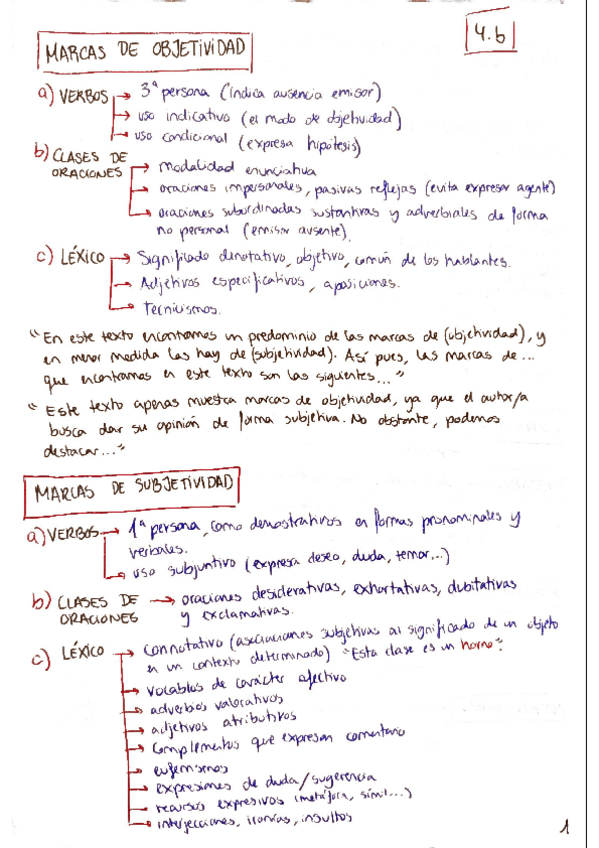 4.b
MARCAS DE OBJETIVIDAD
a) VERBOS → 3ª persona (indica ausencia emisor)
→ uso indicativo (el modo de objetividad)
→ uso condicional (expresa hipótesis)
b) CLASES DE
ORACIONES → modalidad enunciativa
→ oraciones impersonales, pasivas reflejas (evita expresar agente)
→ oraciones subordinadas sustantivas y adverbiales de forma
no personal (emisor ausente).
c) LÉXICO → Significado denotativo, objetivo, común de los hablantes.
→ Adjetivos especificativos, aposiciones.
→ Tecnicismos.
"En este texto encontramos un predominio de las marcas de (objetividad), y
en menor medida las hay de (subjetividad). Así pues, las marcas de...
que encontramos en este texto son las siguientes..."
"Este texto apenas muestra marcas de objetividad, ya que el autor/a
busca dar su opinión de forma subjetiva. No obstante, podemos
destacar..."
MARCAS DE SUBJETIVIDAD
a) VERBOS → 1ª persona, como demostrativos en formas pronominales y
verbales.
→ uso subjuntivo (expresa deseo, duda, temor...)
b) CLASES DE → oraciones desiderativas, exhortativas, dubitativas
ORACIONES y exclamativas.
c) LÉXICO → connotativo (asociaciones subjetivas al significado de un objeto
en un contexto determinado) "Esta clase es un horno".
→ vocablos de carácter afectivo
→ adverbios valorativos
→ adjetivos atributivos
→ complementos que expresan comentario
→ eufemismos
→ expresiones de duda/sugerencia
→ recursos expresivos (metáfora, símil...)
→ interjecciones, ironías, insultos
1